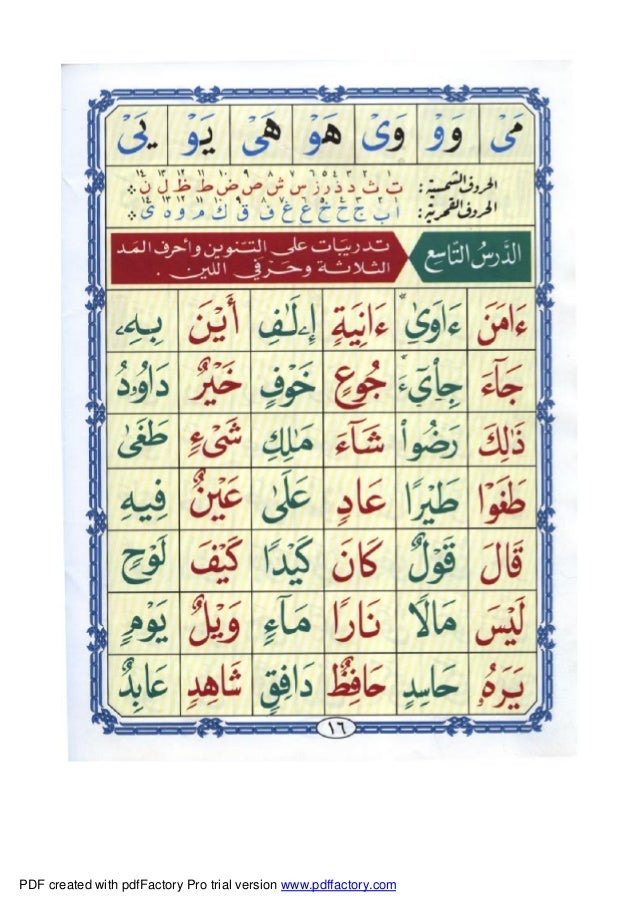 مَىْ وَوْ وَىْ هَوْ هَىْ يَوْ يَىْ
١ ٢ ٣ ٤ ٥ ٦ ٧ ٨ ٩ ١٠ ١١ ١٢ ١٣ ١٤
الحروف الشمسية: ت ث د ذ ر ز س ش ص ض ط ظ ل ن
١ ٢ ٣ ٤ ٥ ٦ ٧ ٨ ٩ ١٠ ١١ ١٢ ١٣ ١٤
الحروف القمرية: ا ب ج ح خ ع غ ف ق ك م و ه ى
الدَّرسُ التَّاسِع
تدريبات على التنوين وأحرف المد
الثلاثة وحرفي اللين .
ءَامَنَ ءَاوَىٰٓ ءَانِيَةٍ إِۦلَٰفِ أَيْنَ بِهِۦ
جَآءَ جِاْىٓءَ جُوعٍ خَوْفٍ خَيْرٌ دَاوُۥدُ
ذَٰلِكَ رَضُواْ شَآءَ مَٰلِكِ شَىْءٍ طَغَىٰ
طَغَوْا طَيْرًا عَادٍ عَلَىٰ عَيْنٌ فِيهِ
قَالَ قَوْلٌ كَانَ كَيْدًا كَيْفَ لَوْحٍ
لَيْسَ مَالًا نَارًا مَآءٍ وَيْلٌ يَوْمٍ
يَرَهُۥ حَاسِدٍ حَافِظٌ دَافِقٍ شَاهِدٍ عَابِدٌ
١٦
PDF created with pdfFactory Pro trial version www.pdffactory.com